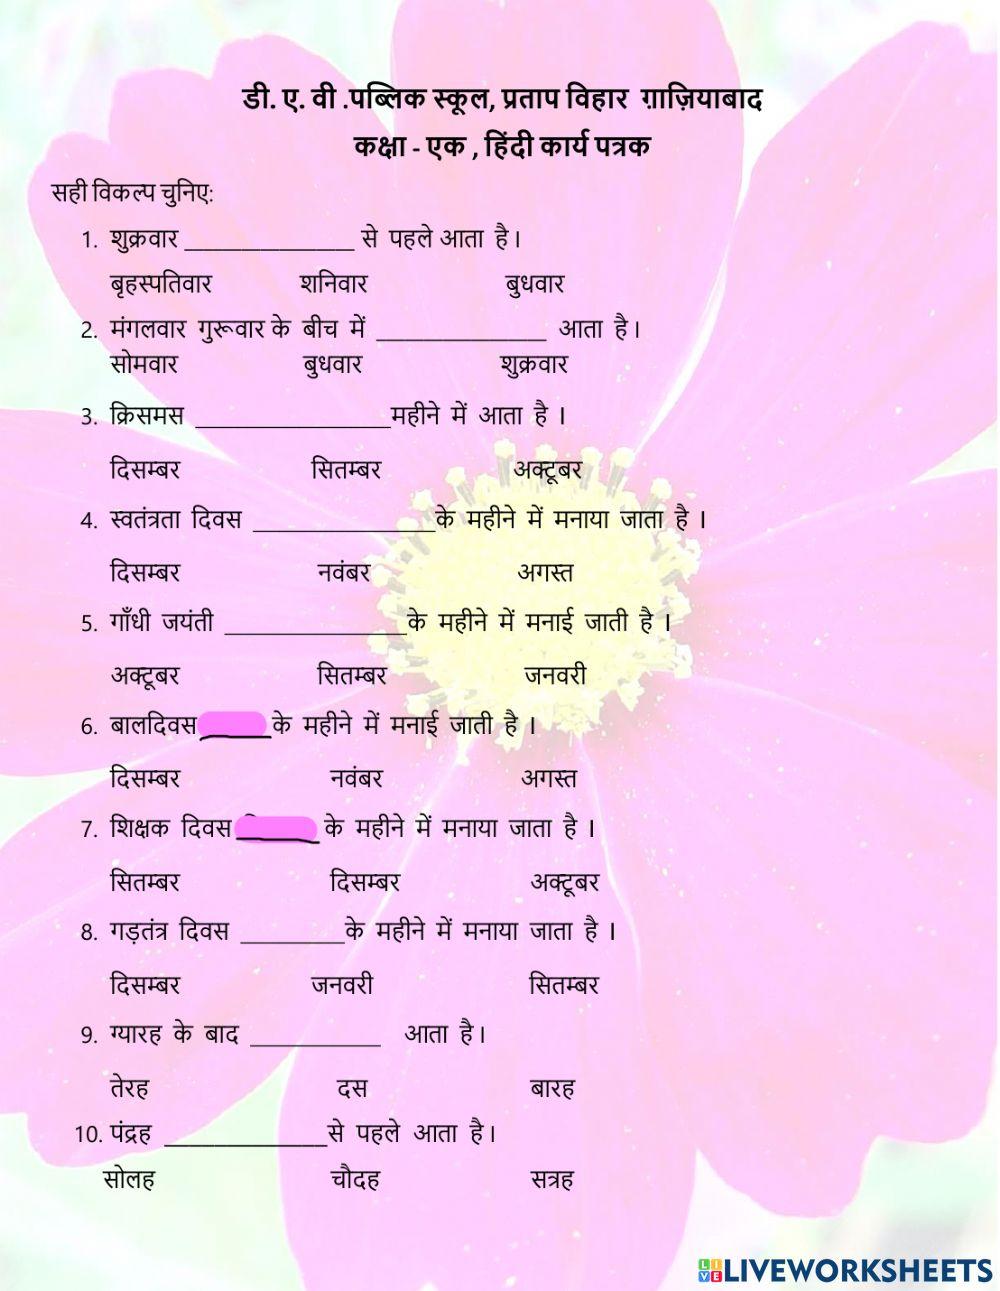 डी. ए. वी .पब्लिक स्कूल, प्रताप विहार ग़ाज़ियाबाद
कक्षा - एक , हिंदी कार्य पत्रक
सही विकल्प चुनिए:
1. शुक्रवार _______________ से पहले आता है।
बृहस्पतिवार शनिवार बुधवार
2. मंगलवार गुरूवार के बीच में _______________ आता है।
सोमवार बुधवार शुक्रवार
3. क्रिसमस _______________महीने में आता है ।
दिसम्बर सितम्बर अक्टूबर
4. स्वतंत्रता दिवस _______________के महीने में मनाया जाता है ।
दिसम्बर नवंबर अगस्त
5. गाँधी जयंती _______________के महीने में मनाई जाती है ।
अक्टूबर सितम्बर जनवरी
6. बालदिवस ______ के महीने में मनाई जाती है ।
दिसम्बर नवंबर अगस्त
7. शिक्षक दिवस ______ के महीने में मनाया जाता है ।
सितम्बर दिसम्बर अक्टूबर
8. गड़तंत्र दिवस ________के महीने में मनाया जाता है ।
दिसम्बर जनवरी सितम्बर
9. ग्यारह के बाद __________ आता है।
तेरह दस बारह
10. पंद्रह _____________से पहले आता है।
सोलह चौदह सत्रह
LIVEWORKSHEETS